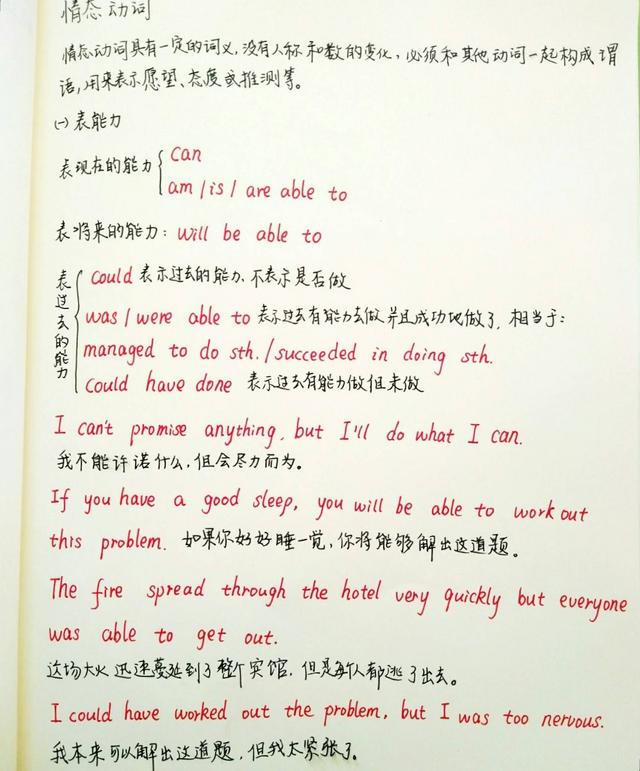 情态动词
情态动词具有一定的词义,没有人称和数的变化,必须和其他动词一起构成谓
语,用来表示愿望、态度或推测等。
(一)表能力
表现在的能力
can
am/is/are able to
表将来的能力: will be able to
表过去的能力
could 表示过去的能力、不表示是否做
was/were able to 表示过去有能力去做并且成功地做了,相当于:
managed to do sth./succeeded in doing sth.
could have done 表示过去有能力做但未做
I can't promise anything, but I'll do what I can.
我不能许诺什么,但会尽力而为。
If you have a good sleep, you will be able to work out
this problem. 如果你好好睡一觉,你将能够解出这道题。
The fire spread through the hotel very quickly but everyone
was able to get out.
这场大火迅速蔓延到了整个宾馆,但是每个人都逃了出去。
I could have worked out the problem, but I was too nervous.
我本来可以解出这道题,但我太紧张了。